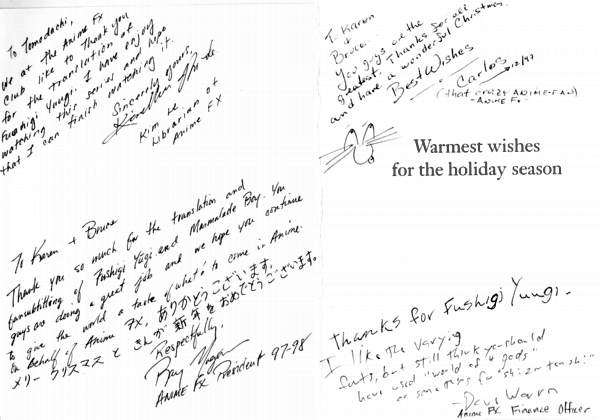 To Tomodachi,
We at The Anime FX
Club like to Thank you
for the translation of
Fushigi Yuugi. I have enjoy
watching this series and hope
that I can finish watching it.
Sincerly yours,
Kim Le
Librarian of
Anime FX
To Karen + Bruce
Thank you so much for the translation and
fansubtitling of Fushigi Yugi and Marmalade Boy. You
guys are doing a great job and we hope you continue
to give the world a taste of what's to come in Anime.
On behalf of Anime FX, ありがとうございます。
メリークリスマス と きんが新年をおめでとうございます。
Respectfully,
Anime FX President 97-98
T. Karen
+
Bruce...
You guys are the
greatest. Thanks for all
and have a wonderful Christmas.
Best Wishes
Carlos
12/97
(that crazy ANIME-FAN)
-ANIME FX.
Warmest wishes
for the holiday season
Thanks for Fushigi Yuugi-
I like the varying
fonts, but still think you should
have used "world of 4 gods"
or something for "shi jin ten chi"
- Dave
Anime FX Finance Officer